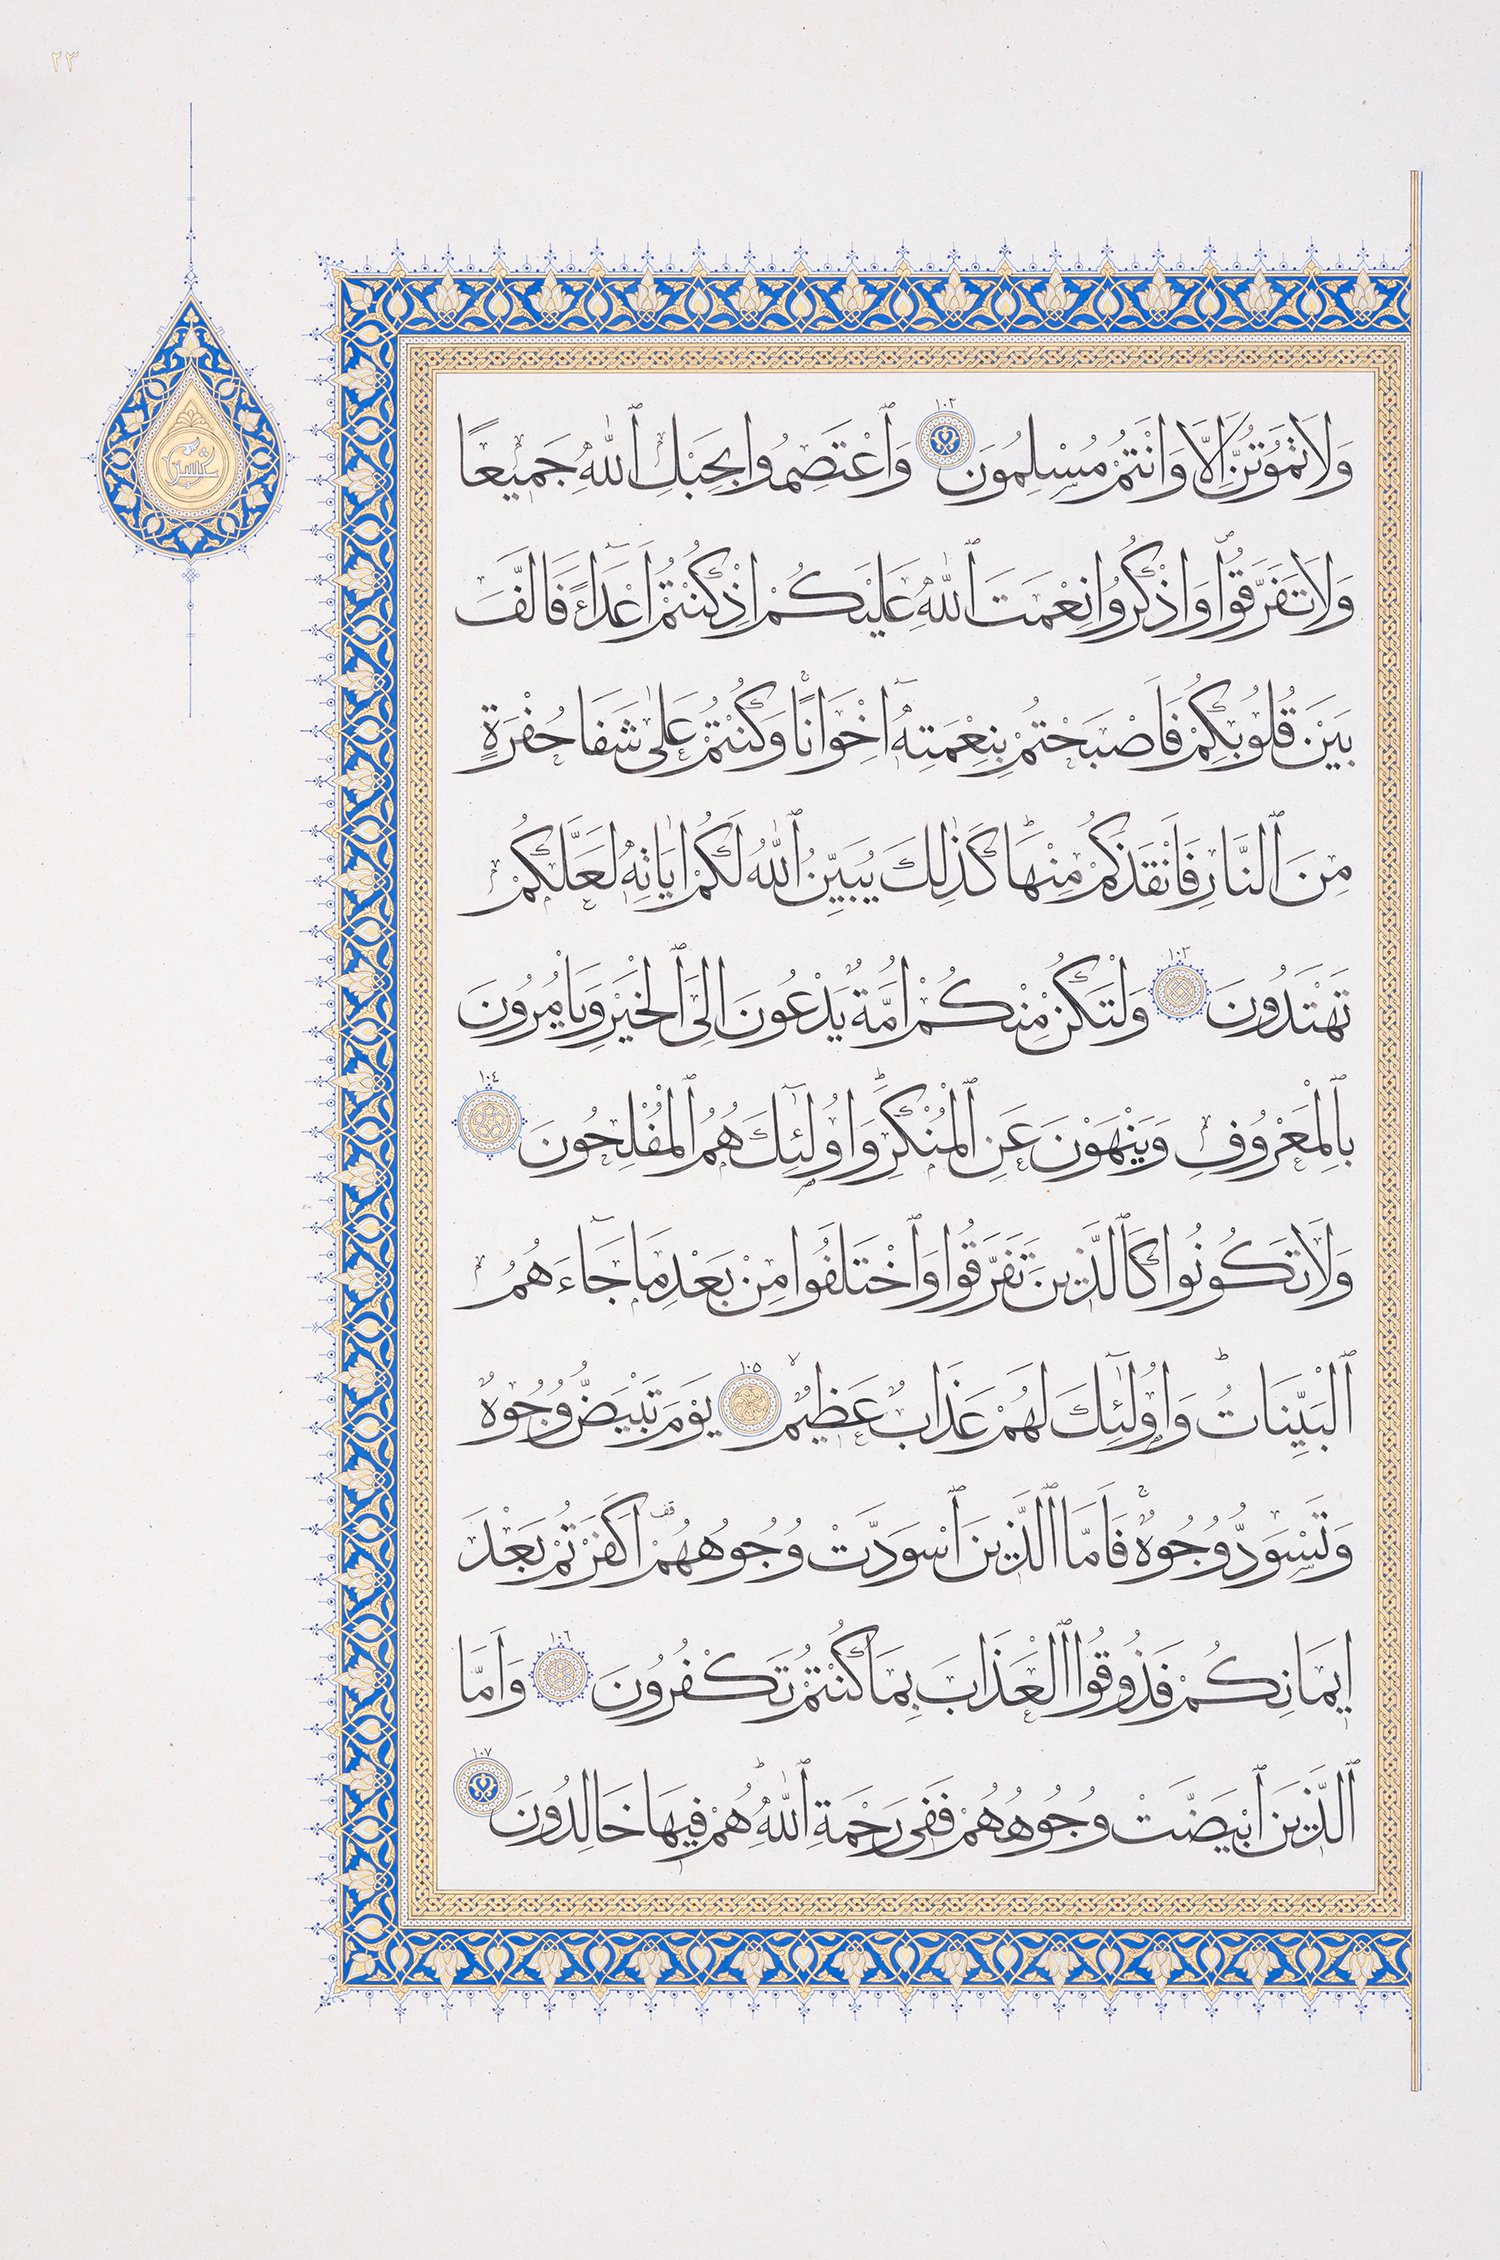 ٢٣
وَلَا تَمُوتُنَّ اِلَّا وَاَنْتُمْ مُسْلِمُونَ ١٠٢ وَٱعْتَصِمُوا بِحَبْلِ ٱللّٰهِ جَمِيعًا
وَلَا تَفَرَّقُوا وَٱذْكُرُوا نِعْمَتَ ٱللّٰهِ عَلَيْكُمْ اِذْ كُنْتُمْ اَعْدَٓاءً فَاَلَّفَ
بَيْنَ قُلُوبِكُمْ فَاَصْبَحْتُمْ بِنِعْمَتِهٓ اِخْوَانًاۚ وَكُنْتُمْ عَلٰى شَفَا حُفْرَةٍ
مِنَ ٱلنَّارِ فَاَنْقَذَكُمْ مِنْهَاۜ كَذٰلِكَ يُبَيِّنُ ٱللّٰهُ لَكُمْ اٰيَاتِهٖ لَعَلَّكُمْ
تَهْتَدُونَ ١٠٣ وَلْتَكُنْ مِنْكُمْ اُمَّةٌ يَدْعُونَ اِلَى ٱلْخَيْرِ وَيَأْمُرُونَ
بِالْمَعْرُوفِ وَيَنْهَوْنَ عَنِ ٱلْمُنْكَرِۜ وَاُو۬لٰٓئِكَ هُمُ ٱلْمُفْلِحُونَ ١٠٤
وَلَا تَكُونُوا كَٱلَّذِينَ تَفَرَّقُوا وَٱخْتَلَفُوا مِنْ بَعْدِ مَا جَٓاءَهُمُ
ٱلْبَيِّنَاتُۜ وَاُو۬لٰٓئِكَ لَهُمْ عَذَابٌ عَظِيمٌۙ ١٠٥ يَوْمَ تَبْيَضُّ وُجُوهٌ
وَتَسْوَدُّ وُجُوهٌۚ فَاَمَّا ٱلَّذِينَ ٱسْوَدَّتْ وُجُوهُهُمْ۠ اَكَفَرْتُمْ بَعْدَ
اِيمَانِكُمْ فَذُوقُوا ٱلْعَذَابَ بِمَا كُنْتُمْ تَكْفُرُونَ ١٠٦ وَاَمَّا
ٱلَّذِينَ ٱبْيَضَّتْ وُجُوهُهُمْ فَفِى رَحْمَةِ ٱللّٰهِۜ هُمْ فِيهَا خَالِدُونَ ١٠٧